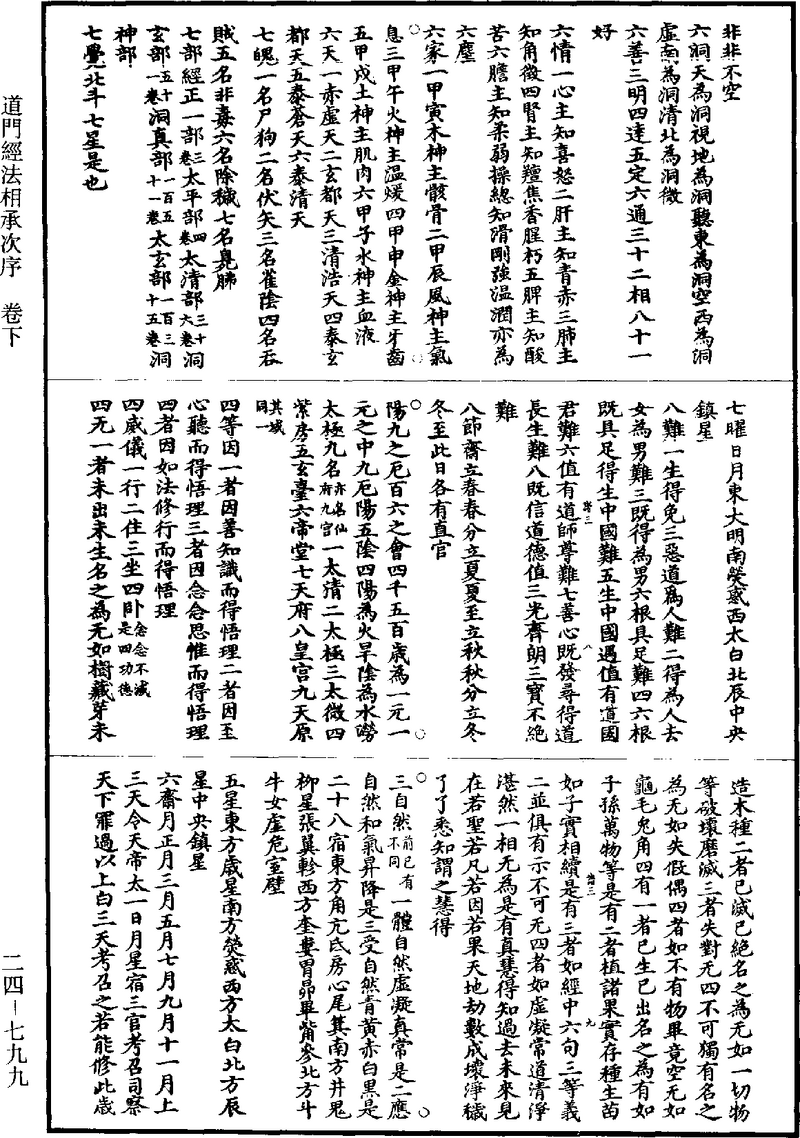 道門經法相承次序　卷下
二四－七九九
非非不空
六洞天為洞視地為洞聽東為洞空西為洞
虛南為洞清北為洞微
六善三明四達五定六通三十二相八十一
好
六情一心主知喜怒二肝主知青赤三肺主
知角徵四腎主知羶焦香腥朽五脾主知酸
苦六膽主知柔弱操緩知滑剛強溫潤亦為
六塵
六家一甲寅木神主骸骨二甲辰風神主氣
息三甲午火神主溫煖四甲申金神主牙齒
五甲戌土神主肌肉六甲子水神主血液
六天一赤虛天二玄都天三清浩天四泰玄
都天五泰蒼天六泰清天
七魄一名尸狗二名伏矢三名雀陰四名吞
賊五名非毒六名除穢七名臭肺
七部經正一部三卷太平部四卷太清部三十六卷洞
玄部五十一卷洞真部一百五十一卷太玄部一百三十五卷洞
神部
七覺北斗七星是也
七曜日月東大明南熒惑西太白北辰中央
鎮星
八難一生得免三惡道為人難二得為人去
女為男難三既得為男六根具足難四六根
既具足得生中國難五生中國遇值有道國
君難六值有道師尊難七善心既發尋得道
長生難八既信道德值三光齊朗三寶不絕
難
八節齋立春春分立夏夏至立秋秋分立冬
冬至此日各有直官
陽九之厄百六之會四千五百歲為一元一
元之中九厄陽五陰四陽為火旱陰為水澇
太極九名亦名仙府九官一太清二太極三太微四
紫房五玄臺六帝堂七天府八皇宮九天原
其域同一
四等因一者因善知識而得悟理二者因至
心聽而得悟理三者因念念思惟而得悟理
四者因如法修行而得悟理
四威儀一行二住三坐四卧念念不滅是四功德
四无一者未出未生名之為无如樹藏芽未
造木種二者已滅已絕名之為无如一切物
等破壞磨滅三者失對无四不可獨有名之
為无如失假偶四者如不有物畢竟空无如
龜毛兔角四有一者已生已出名之為有如
子孫萬物等是有二者植諸果實存種生苗
如子實相續是有三者如經中六句三等義
二並俱有示不可无四者如虛凝常道清淨
湛然一相无為是有真慧得知過去未來見
在若聖若凡若因若果天地劫數成壞淨穢
了了悉知謂之慧得
三自然前已有不同一體自然虛凝真常是二應
自然和氣昇降是三受自然青黃赤白黑是
二十八宿東方角亢氐房心尾箕南方井鬼
柳星張翼軫西方奎婁胃昴畢觜參北方斗
牛女虛危室壁
五星東方歲星南方熒惑西方太白北方辰
星中央鎮星
六齋月正月三月五月七月九月十一月上
三天令天帝太一日月星宿三官考召司察
天下罪過以上白三天考召之若能修此歲